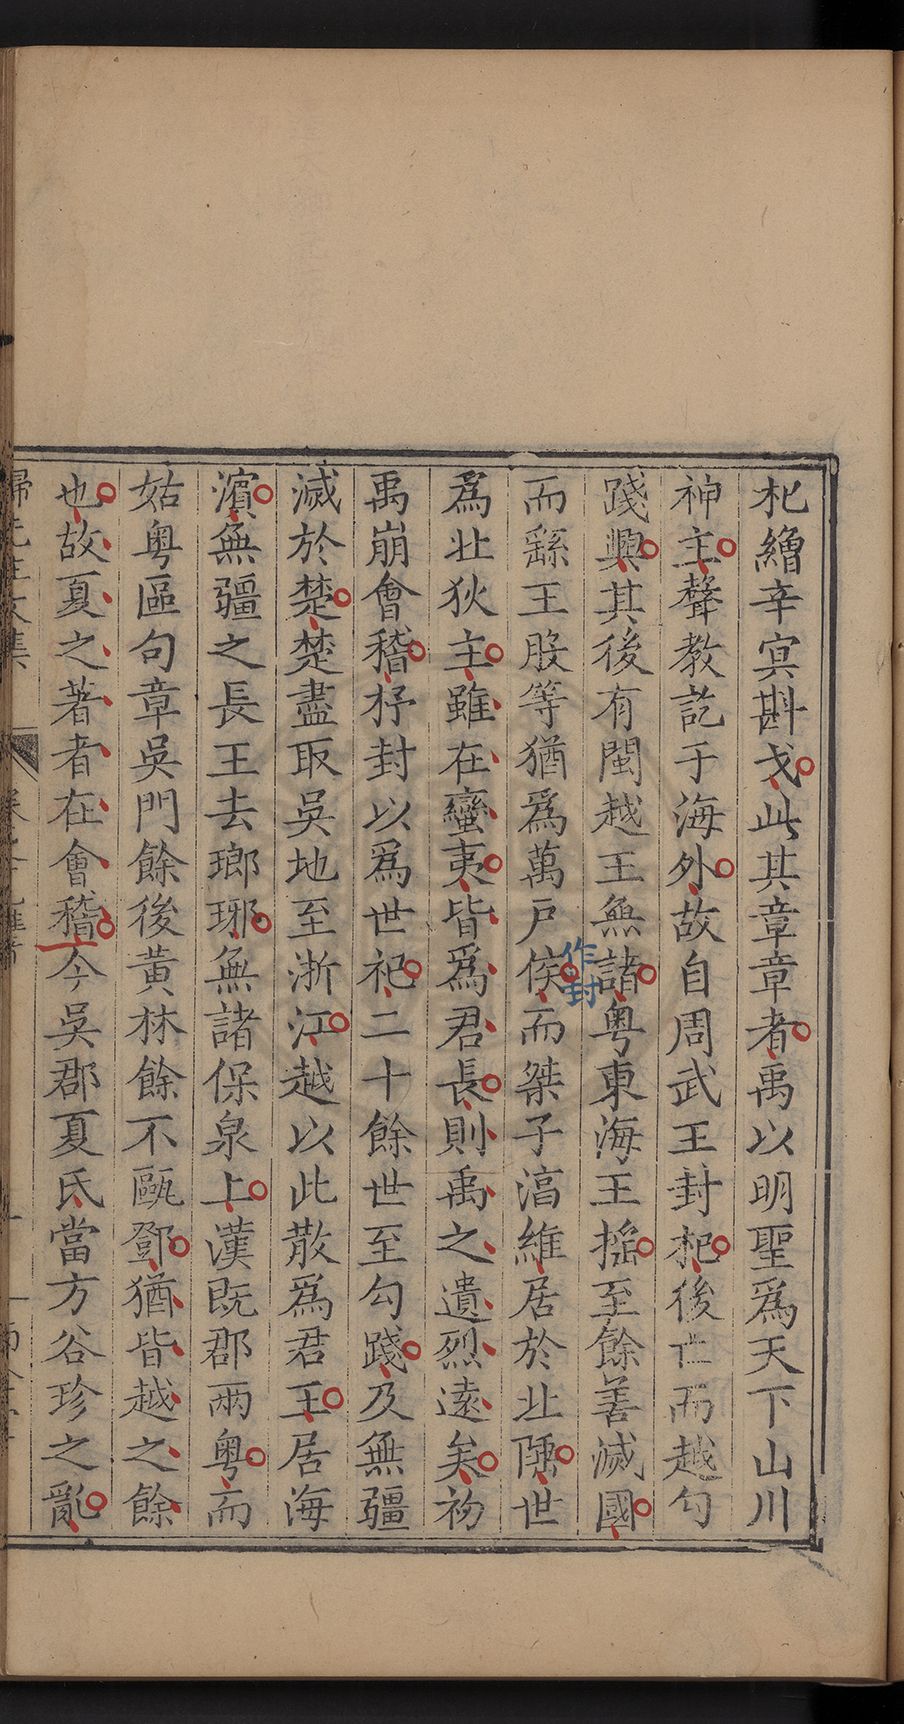 杞繒辛㝠斟戈此其章章者禹以明聖爲天下山川
神主聲教訖于海外故自周武王封杞後亡而越勾
踐興其後有閩越王無諸粤東海王摇至餘善滅國
作封
而繇王股等猶爲萬戸侯而桀子淳維居於北隅世
爲北狄主雖在蠻夷皆爲君長則禹之遺烈逺矣初
禹崩會稽杼封以爲世祀二十餘世至勾踐及無疆
滅於楚楚盡取吳地至浙江越以此散爲君王居海
濵無疆之長王去瑯琊無諸保泉上漢既郡兩粤而
姑粤區句章吳門餘後黄林餘不甌鄧猶皆越之餘
也故夏之著者在會稽今吳郡夏氏當方谷珍之亂